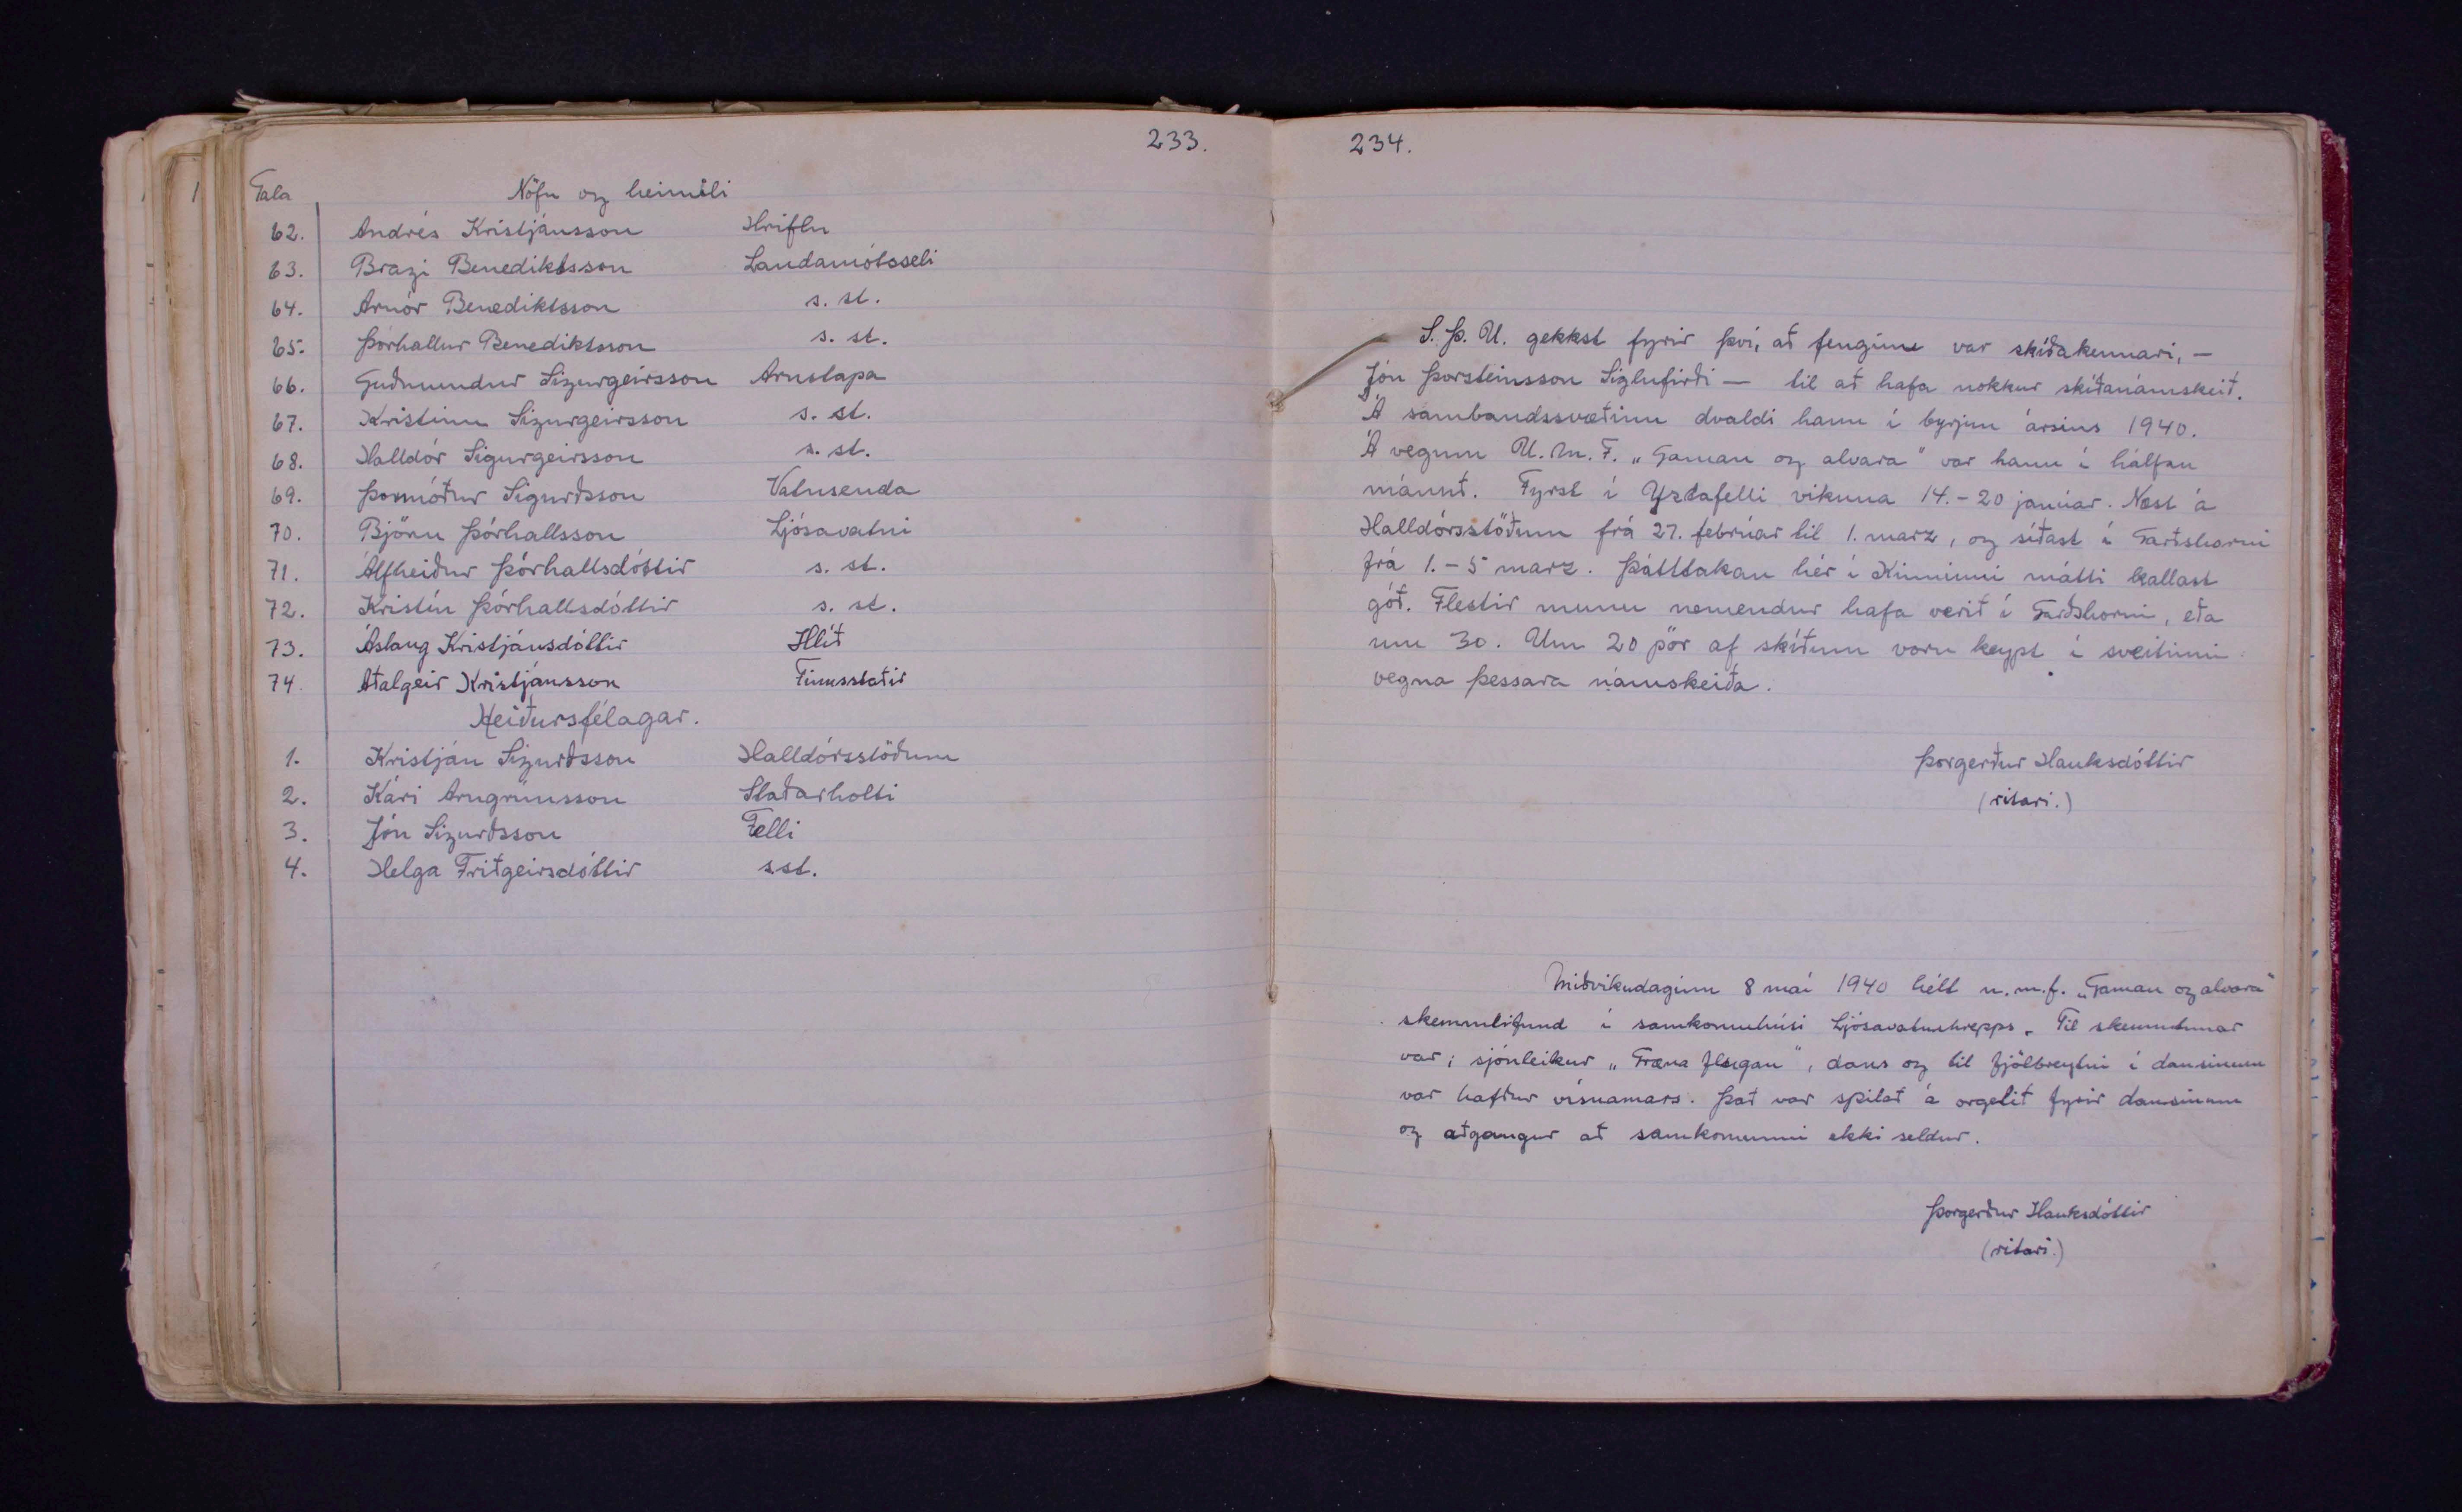 233.
Tala Nöfn og heimili
62. Andrés Kristjánsson Hriflu
63. Bragi Benediktsson Landamótsseli
64. Arnór Benediktsson s. st.
65. Þórhallur Benediktsson s. st.
66. Guðmundur Sigurgeirsson Arnstapa
67. Kristinn Sigurgeirsson s. st.
68. Halldór Sigurgeirsson s. st.
69. Þormóður Sigurðsson Vatnsenda
70. Björn Þórhallsson Ljósavatni
71. Álfheiður Þórhallsdóttir s. st.
72. Kristín Þórhallsdóttir s. st.
73. Áslaug Kristjánsdóttir Hlíð
74. Aðalgeir Kristjánsson Finnsstaðir
Heiðursfélagar.
1. Kristján Sigurðsson Halldórsstöðum
2. Kári Arngrímsson Staðarholti
3. Jón Sigurðsson Felli
4. Helga Friðgeirsdóttir s.st.
234.
S. Þ. U. gekkst fyrir því, að fenginn var skíðakennari, –
Jón Þorsteinsson Siglufirði – til að hafa nokkur skíðanámskeið.
Á sambandssvæðinu dvaldi hann í byrjun ársins 1940.
Á vegum U. M. F. „Gaman og alvara" var hann í hálfan
mánuð. Fyrst í Yztafelli vikuna 14. – 20 janúar. Næst á
Halldórsstöðum frá 27. febrúar til 1. marz, og síðast í Garðshorni
frá 1. – 5 marz. Þátttakan hér í Kinninni mátti kallast
góð. Flestir munu nemendur hafa verið í Garðshorni, eða
um 30. Um 20 pör af skíðum voru keypt í sveitinni
vegna þessara námskeiða.
Þorgerður Hauksdóttir
(ritari.)
Miðvikudaginn 8 maí 1940 hélt u. m. f. „Gaman og alvara"
skemmtifund í samkomuhúsi Ljósavatnshrepps. Til skemmtunar
var; sjónleikur „Græna flugan", dans og til fjölbreytni í dansinum
var hafður vísnamars. Það var spilað á orgelið fyrir dansinum
og aðgangur að samkomunni ekki seldur.
Þorgerður Hauksdóttir
(ritari.)